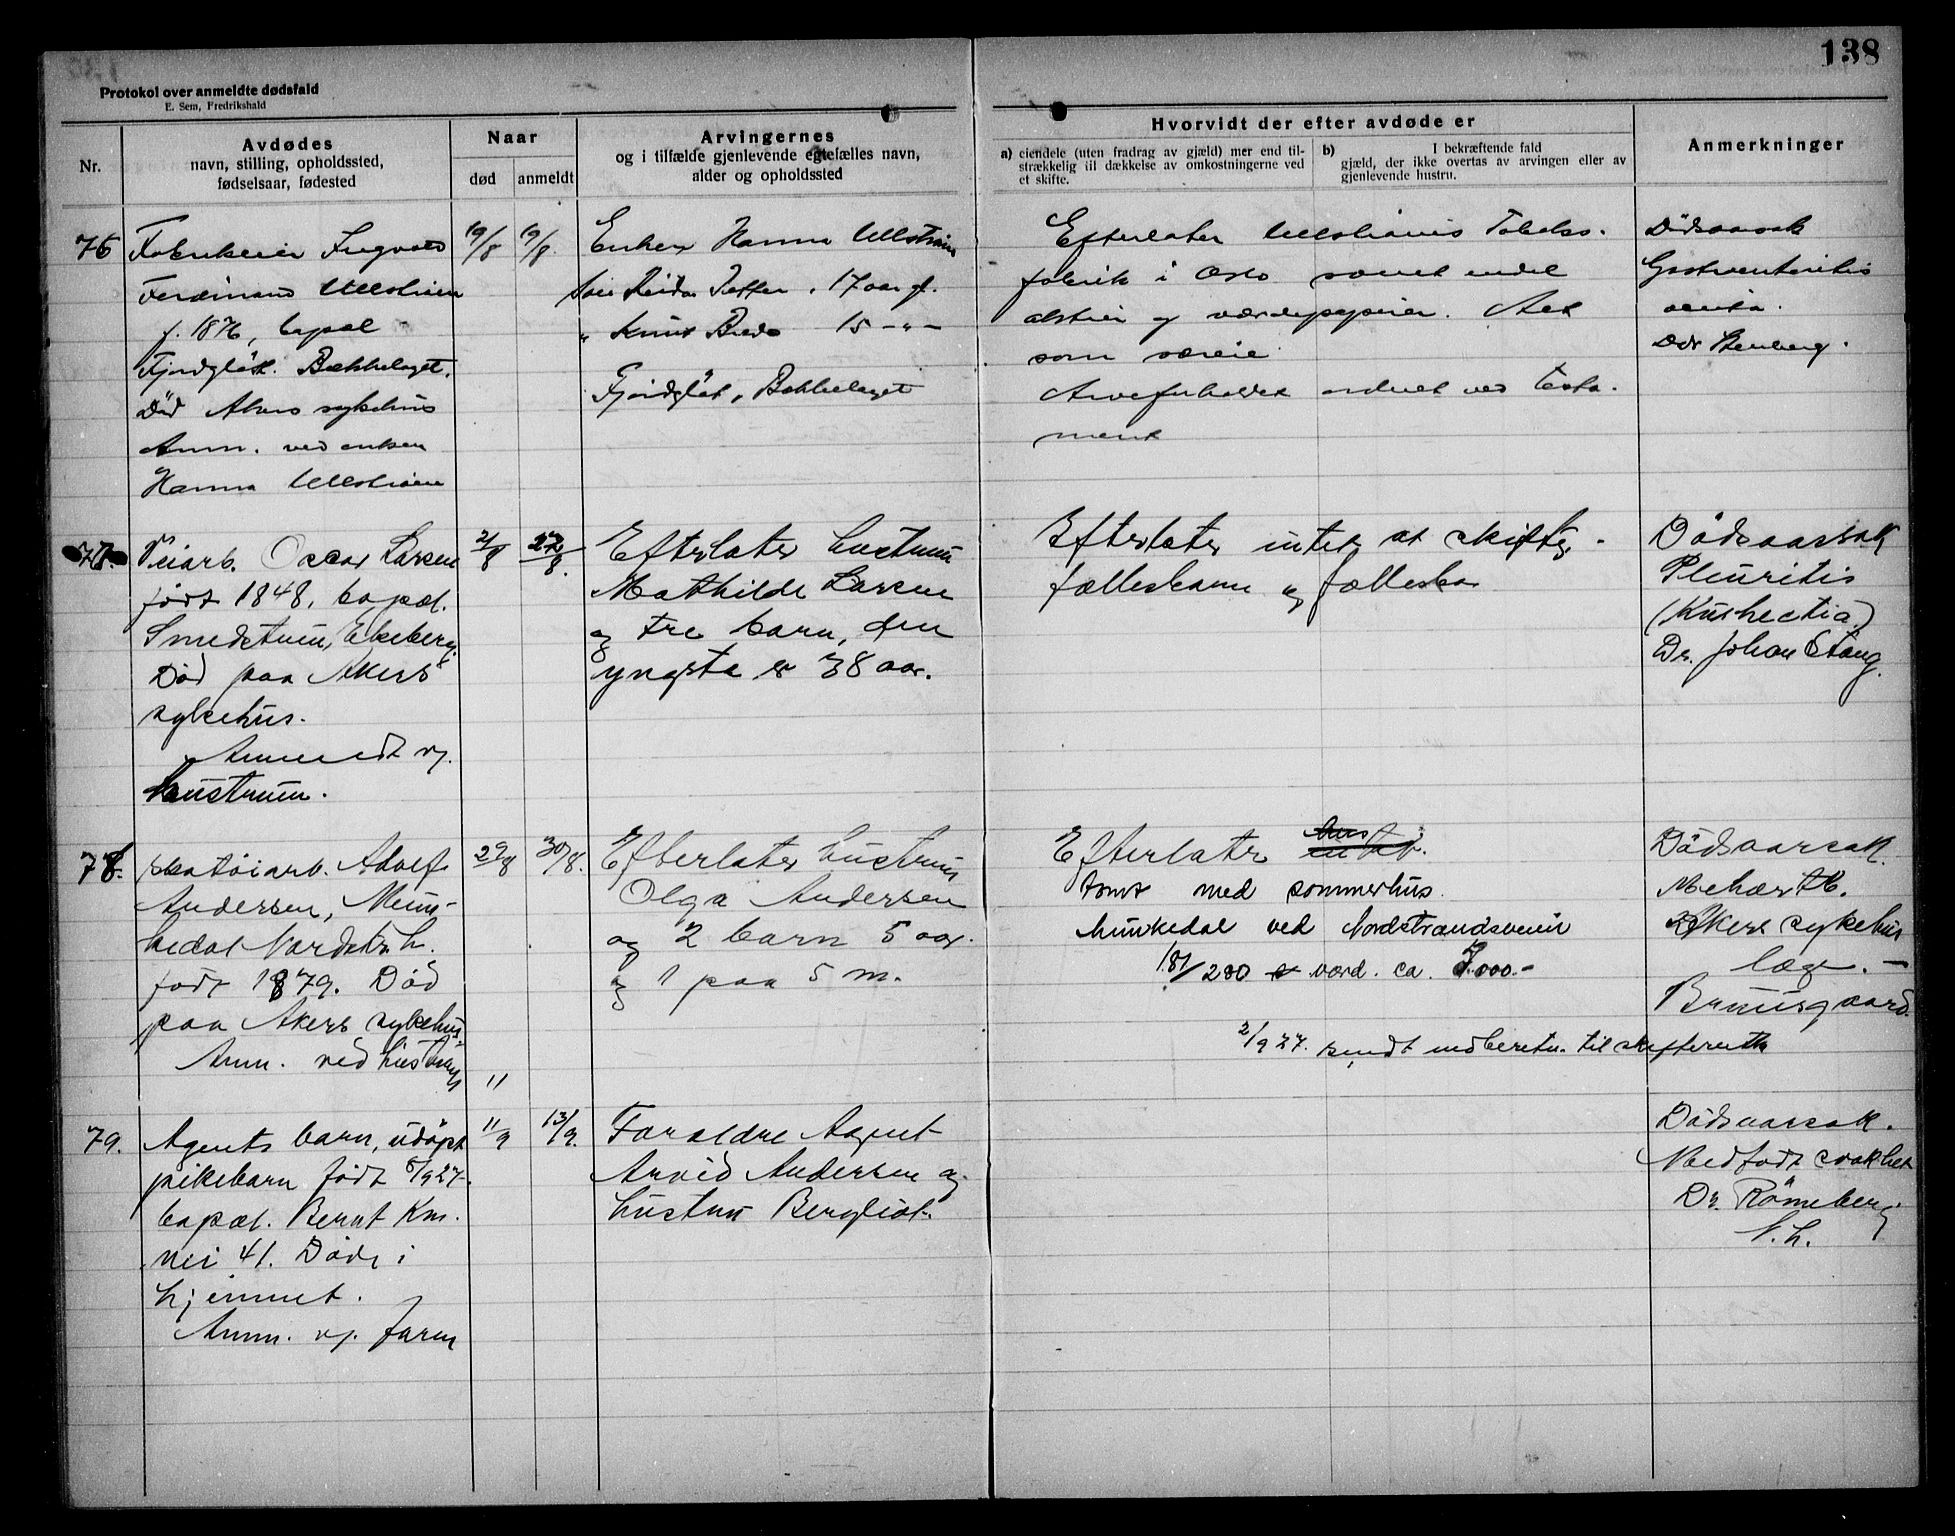 138
Protokol over anmeldte dødsfald
E. Sem, Fredrikshald
Nr.
Avdødes
navn, stilling, opholdssted,
fødselsaar, fødested
Naar
død
anmeldt
Arvingernes
og i tilfælde gjenlevende egtefælles navn,
alder og opholdssted
Hvorvidt der efter avdøde er
a) eiendele (uten fradrag av gjæld) mer end til-
strækkelig til dækkelse av omkostningerne ved
et skifte.
b) I bekræftende fald
gjæld, der ikke overtas av arvingen eller av
gjenlevende hustru.
Anmerkninger
76
Fabrikeier Ingvald
Ferdinand
f. 1876, bopæl
Fjordgløt. Bækkelaget.
Död Akers sykehus
Anm. ved enken
Hanna
19/8
19/8.
Enken Hanna
Reidar Petter, 17 aar gl.
" Knut 15 - " -
Fjordgløt, Bækkelaget
Efterlater Tobaks-
fabrik i Oslo samt endel
aktier og værdipapirer. Alt
som særeie
Arveforholdet ordnet ved testa-
ment
Dödsaarsak
Gastroenteritis
acuta.
77.
Veiarb. Oscar Larsen
født 1848, bopæl.
Smedstuen, Ekeberg.
Död paa Akers
sykehus.
Anmeldt v.
hustruen.
2/8
27/8.
Efterlater hustruen
Mathilde Larsen
og tre barn, den
yngste er 38 aar.
Efterlater intet at skifte,
fællesbarn og fællesbo
Dödsaarsak
Pleuritis
Dr. Johan Stang.
78.
Skotøiarb. Adolf
Andersen, Mun-
kedal Nordstr.h.
født 1879. Död
paa Akers sykehus.
Anm. ved hustruen
29/8
30/8.
Efterlater hustruen
Olga Andersen
og 2 barn 5 aar.
og 1 paa 5 m.
Efterlater hus intet.
tomt med sommerhus.
Munkedal ved Nordstrandsveien
181/280 værd. ca. 7.000.-
2/9 27. sendt indberetn. til skifteretten
Dödsaarsak.
Akers sykehus
læge. -
Bruusgaard.
11
79.
Agents barn, udöpt
pikebarn født 8/9 27.
bopæl. Bernt Kn.
vei 41. Döde i
hjemmet.
Anm. v. faren
11/9
13/9.
Foraldre Agent
Arvid Andersen og
hustru Bergliot.
Dödsaarsak.
Medfødt svakhet
Dr. Römeberg
N.h.